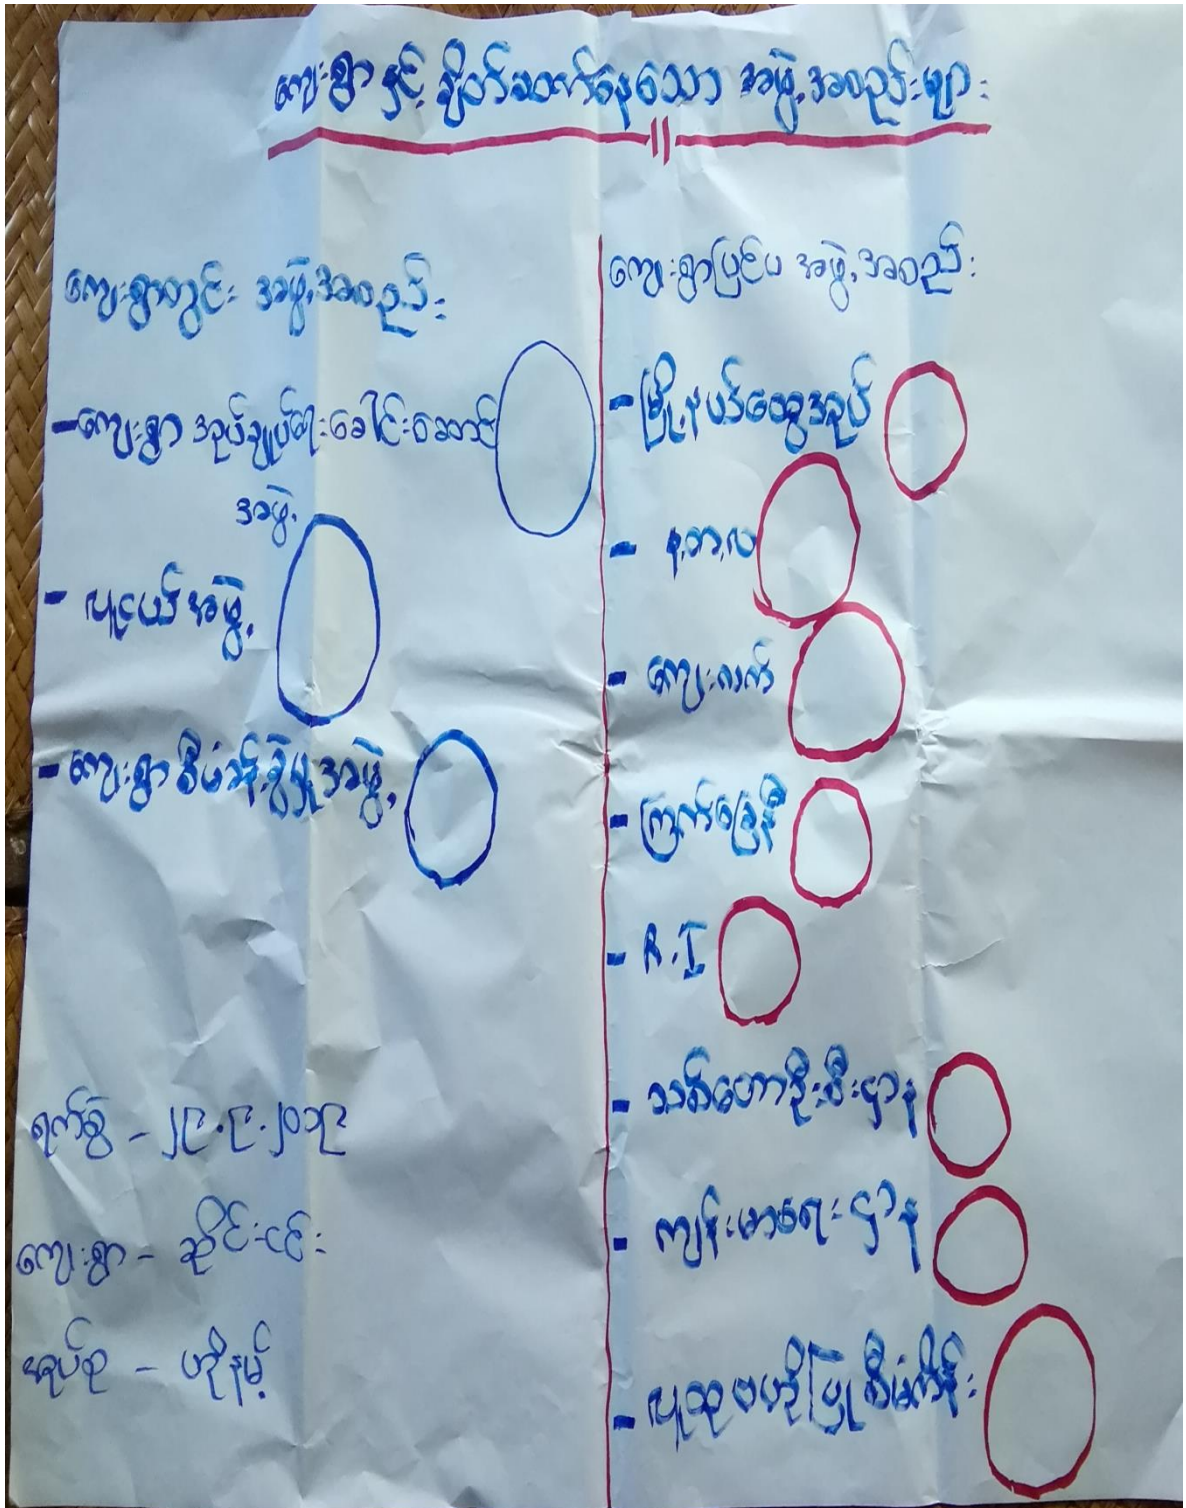 ကျေးရွာနှင့် ချိတ်ဆက်နေသော အဖွဲ့အစည်းများ
။
ကျေးရွာတွင်း အဖွဲ့အစည်း
-ကျေးရွာ အုပ်ချုပ်ရေးခေါင်းဆောင်
အဖွဲ့
- လူငယ်အဖွဲ့
- ကျေးရွာစီမံခန့်ခွဲမှုအဖွဲ့
ရက်စွဲ - ၂၉.၉.၂၀၁၉
ကျေးရွာ - ဆိုင်းငင်း
အုပ်စု - ဟိုနမ့်
ကျေးရွာပြင်ပ အဖွဲ့အစည်း
- မြို့နယ်ထွေအုပ်
- န.တ.လ
- ကျေးလက်
- ကြက်ခြေနီ
- R.I
- သစ်တောဦးစီးဌာန
- ကျန်းမာရေးဌာန
- လူထုဗဟိုပြုစီမံကိန်း